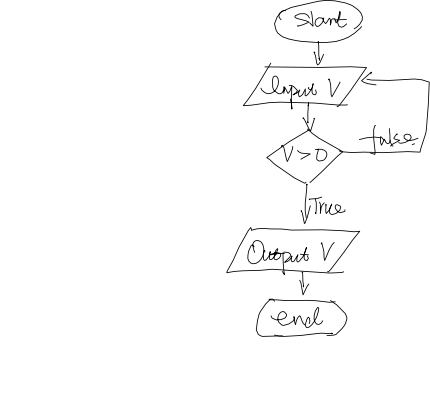 Start
Input V
V>0
false
True
Output V
end